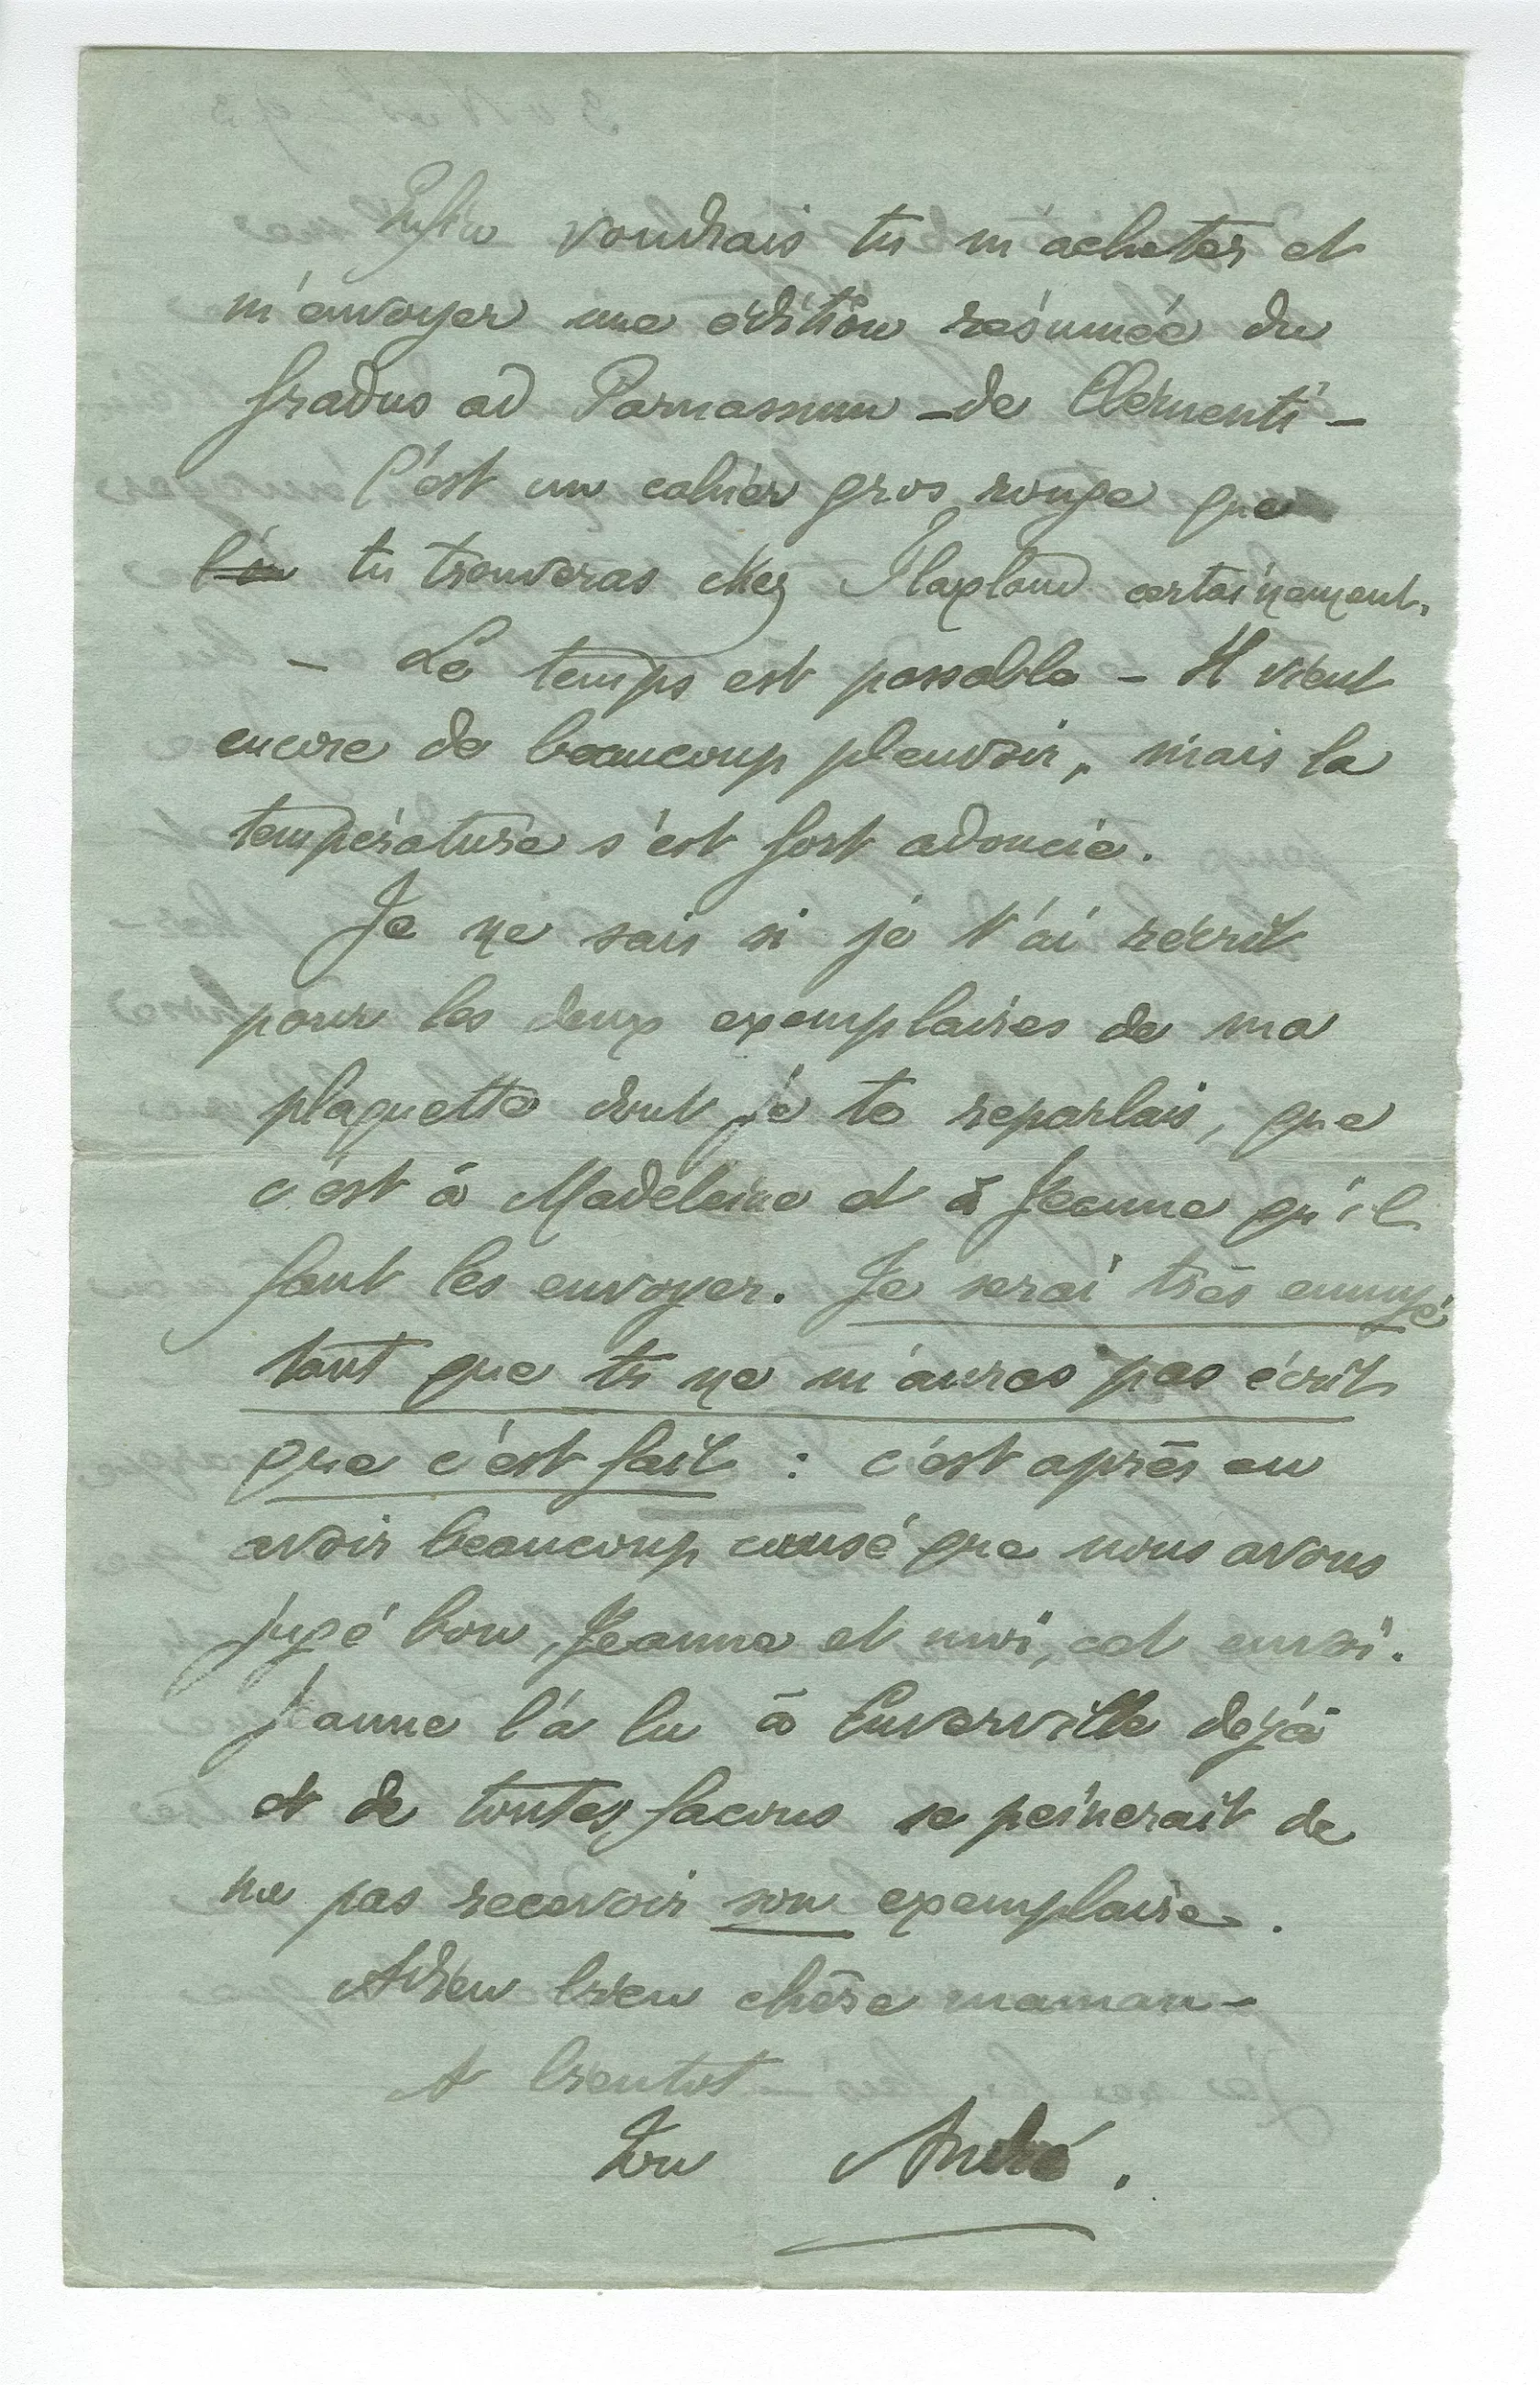 Enfin voudrais tu m'acheter et
m'envoyer une édition résumée du
Gradus ad Parnassum – de Clémenti –
C'est un cahier gros rouge que
l'on tu trouveras chez Flaxland certainement.
– Le temps est passable – Il vient
encore de beaucoup pleuvoir, mais la
température s'est fort adoucie.
Je ne sais si je t'ai récrit
pour les deux exemplaires de ma
plaquette dont je te reparlais, que
c'est à Madeleine et à Jeanne qu'il
faut les envoyer. Je serai très ennuyé
tant que tu ne m'auras pas écrit
que c'est fait : c'est après en
avoir beaucoup causé que nous avons
jugé bon, Jeanne et moi, cet envoi.
Jeanne l'a lu à Cuverville déjà
et de toutes facons se peinerait de
ne pas recevoir son exemplaire.
Adieu bien chère maman –
A bientot
Ton André.